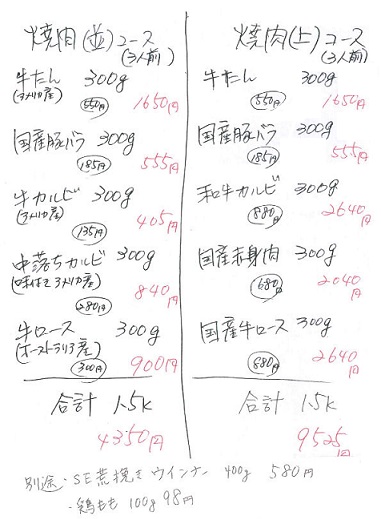 焼肉(並)コース
(3人前)
牛たん 300g
(アメリカ産)
550円 1650円
国産豚バラ 300g
185円 555円
牛カルビ 300g
(アメリカ産)
135円 405円
中落ちカルビ 300g
(味付てアメリカ産)
280円 840円
牛ロース 300g
(オーストラリア産)
300円 900円
合計 1.5k
4350円
焼肉(上)コース
(3人前)
牛たん 300g
550円 1650円
国産豚バラ 300g
185円 555円
和牛カルビ 300g
880円 2640円
国産赤身肉 300g
680円 2040円
国産牛ロース 300g
880円 2640円
合計 1.5k
9525円
別途・SE荒挽きウインナー 400g 580円
・鶏もも 100g 98円